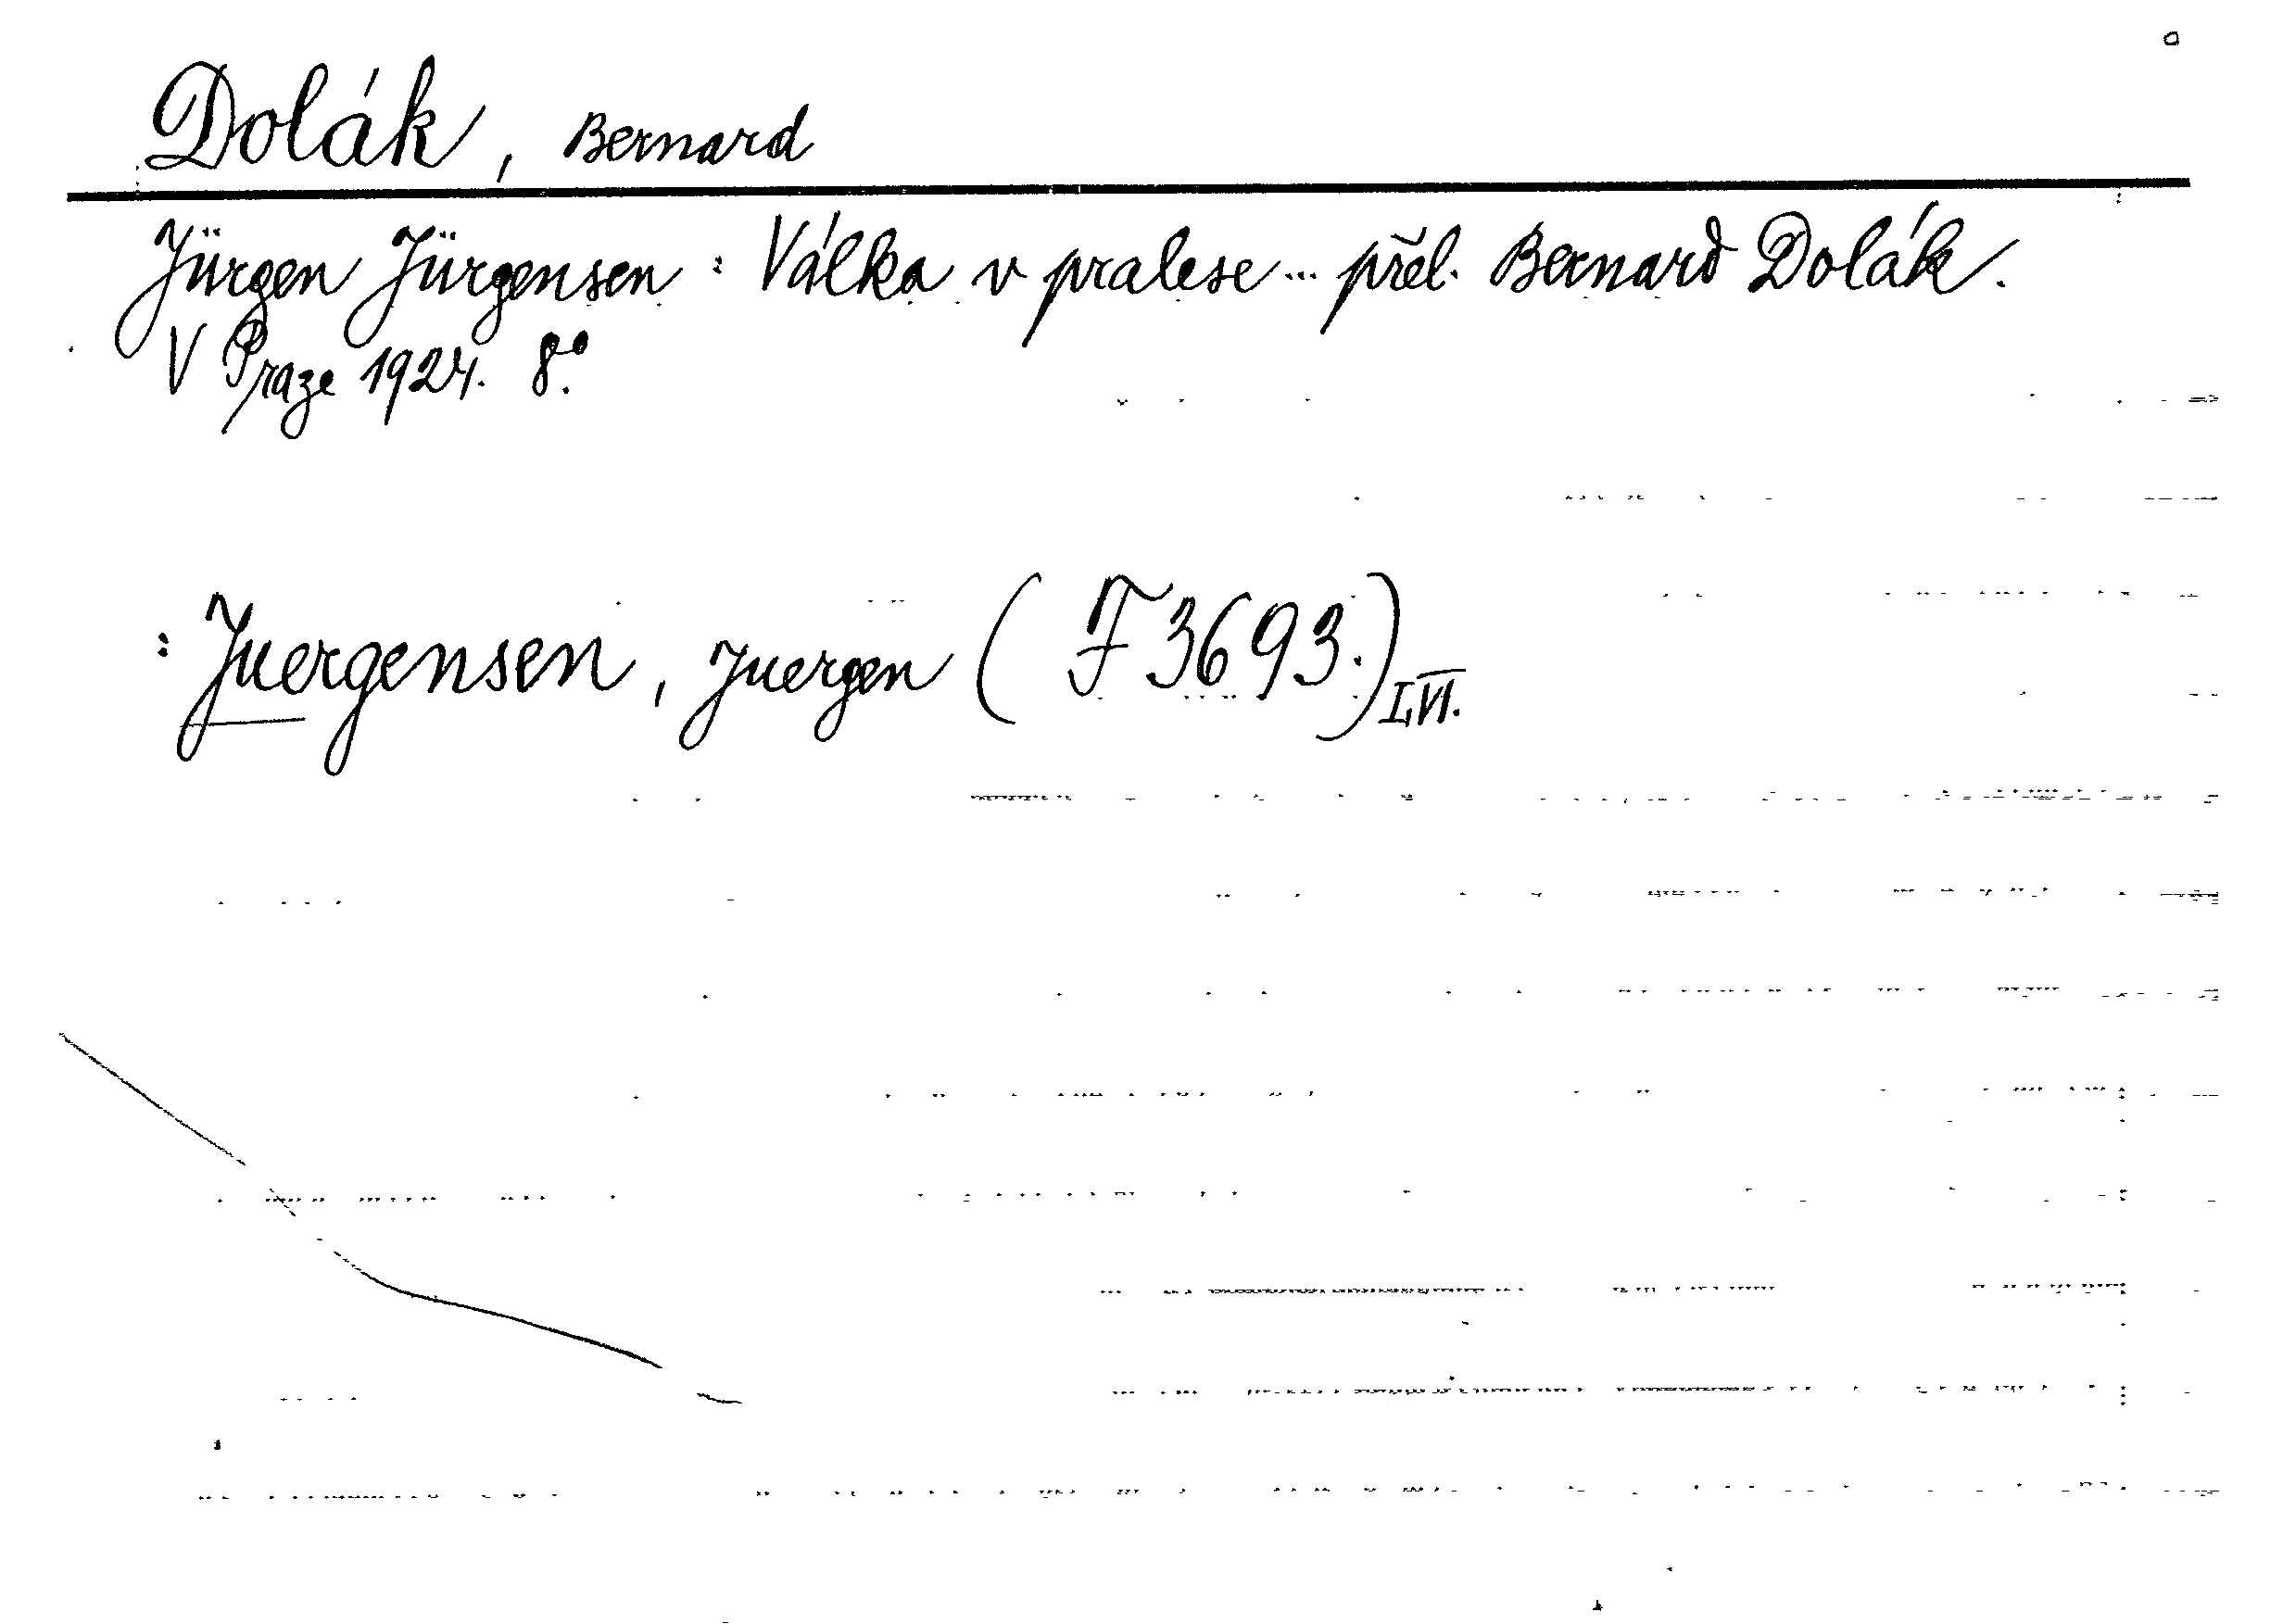 Dolák, Bernard
Jürgen Jürgensen : Válka v pralese... přel. Bernard Dolák.
V Praze 1924. 8.°
: Juergensen, Juergen ( F 3693.) I,VI.